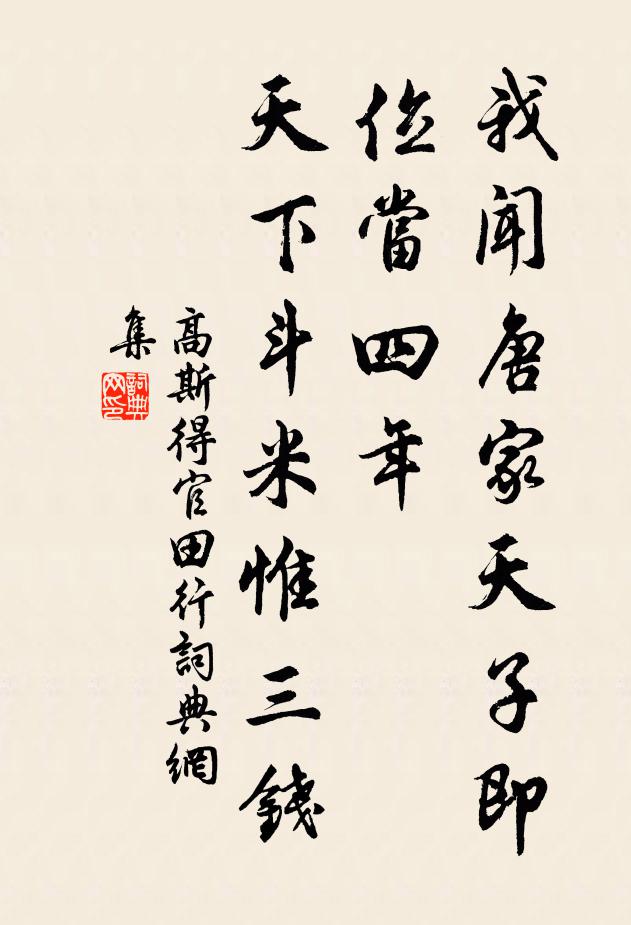 我聞唐家天子即
位當四年
天下斗米惟三錢
高斯得官田行詞典網
集
詞典
网印